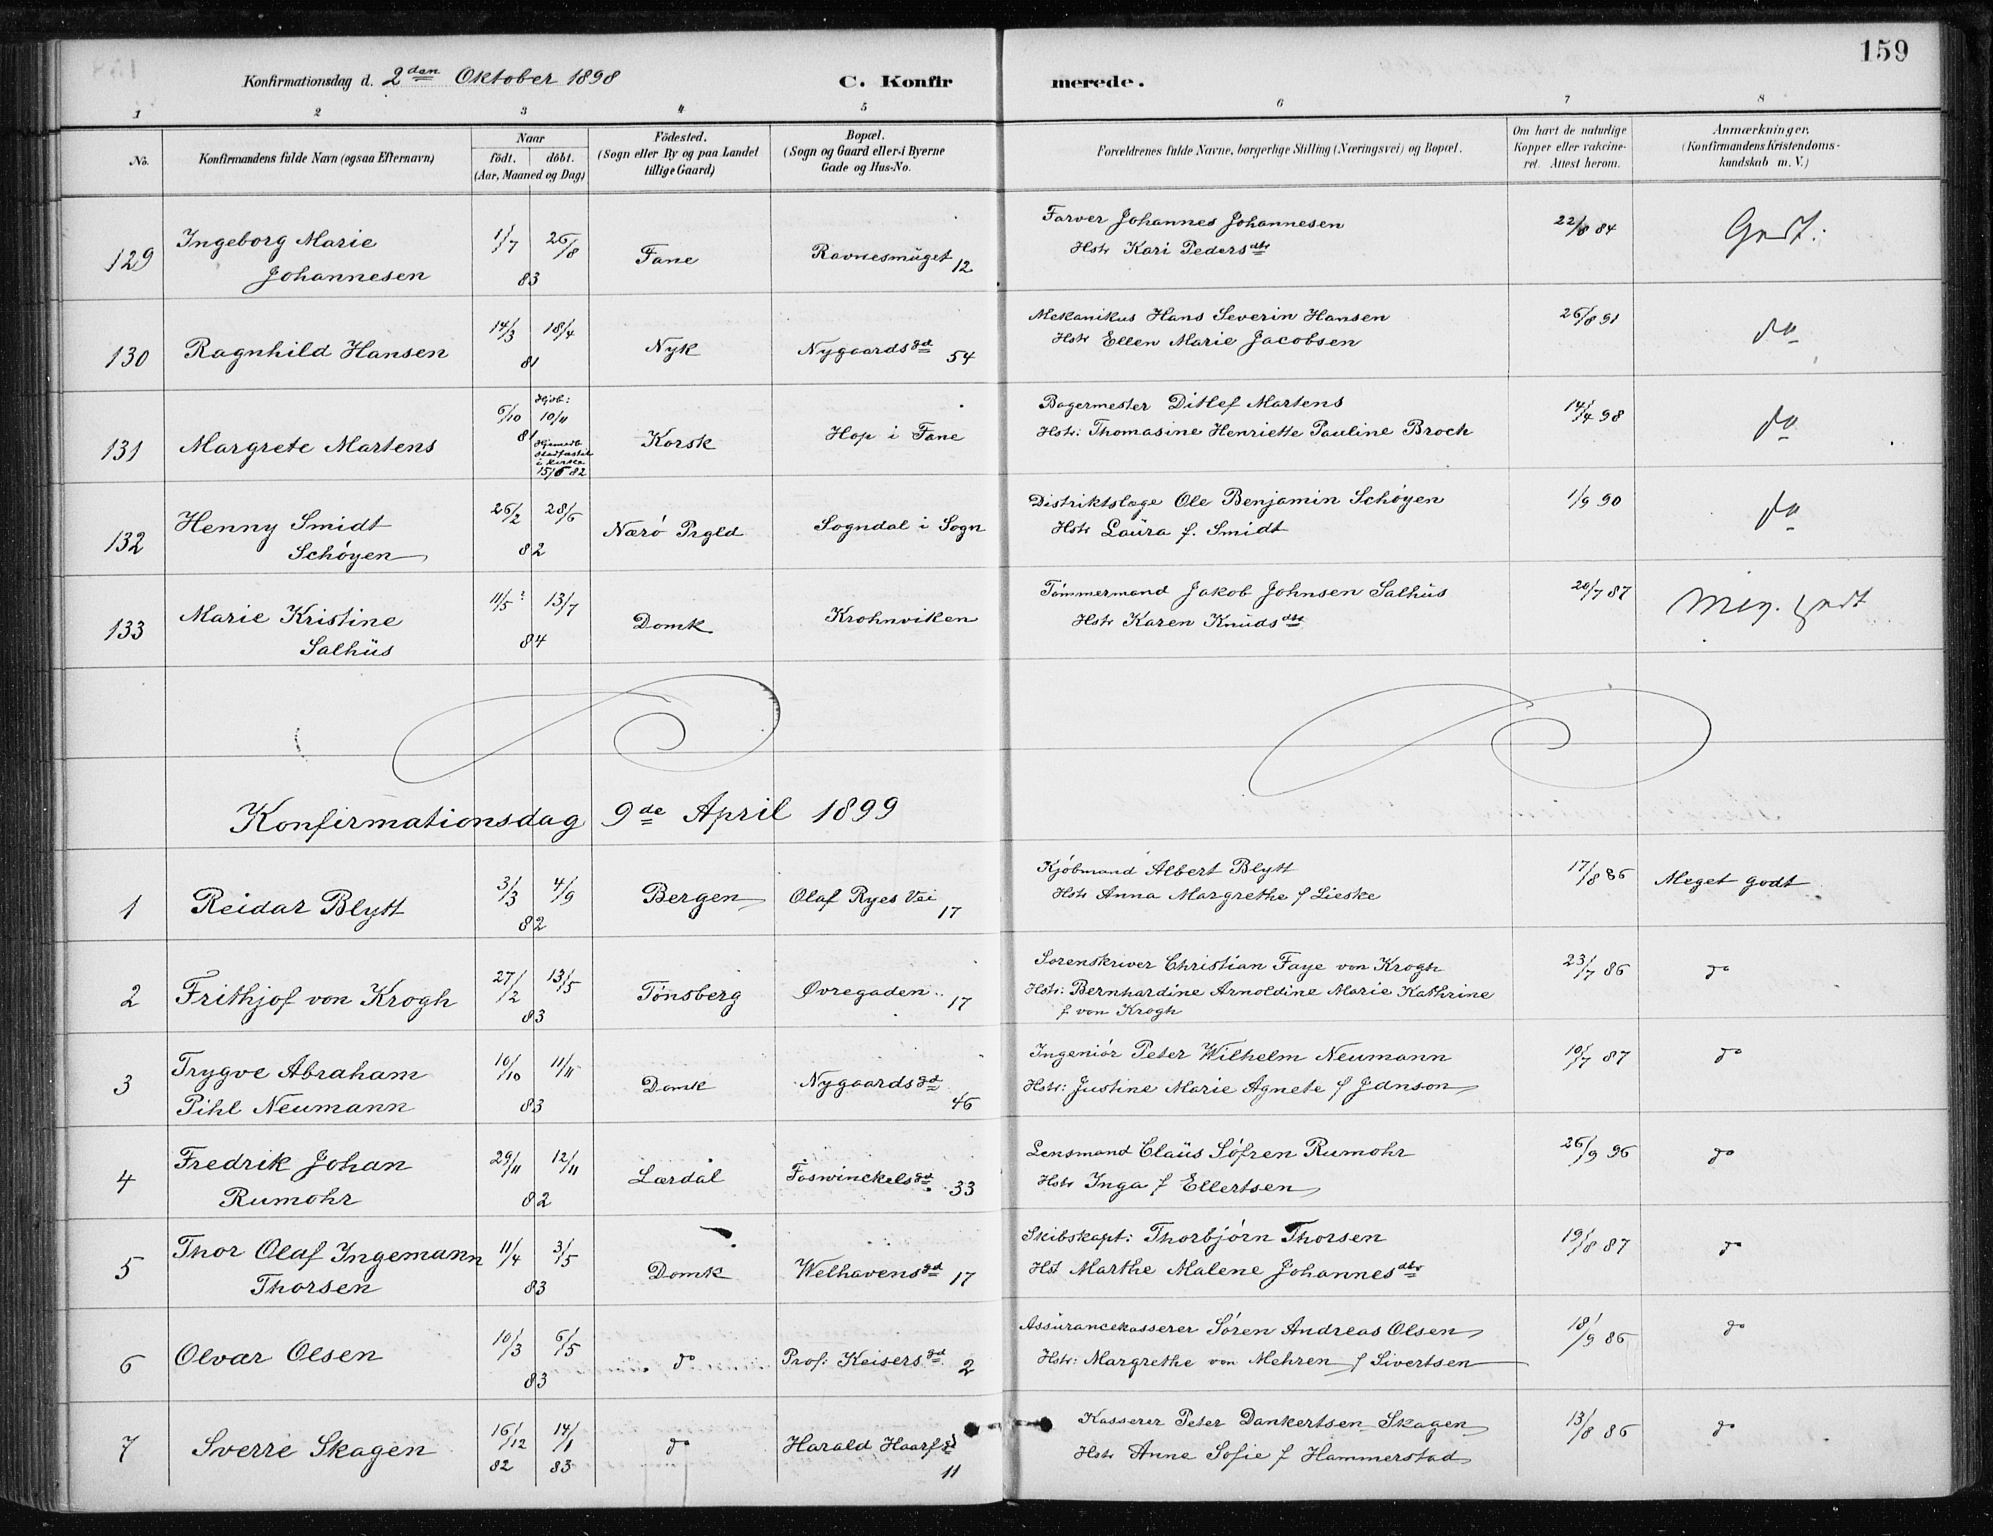 159
Konfirmationsdag d. 2den Oktober 1898
C. Konfirmerede.
1 2 3 4 5 6 7 8
No.
Konfirmandens fulde Navn (ogsaa Efternavn)
Naar
födt. döbt.
(Aar, Maaned og Dag)
Födested.
(Sogn eller By og paa Landet
tillige Gaard)
Bopæl.
(Sogn og Gaard eller i Byerne
Gade og Hus-No.
Forældrenes fulde Navne, borgerlige Stilling (Næringsvei) og Bopæl.
Om havt de naturlige
Kopper eller vakcine-
ret. Attest herom.
Anmærkninger.
(Konfirmandens Kristendoms-
kundskab m. V.)
129 Ingeborg Marie Johannesen 1/7 26/8 83 Fane Ravnesmuget 12 Farver Johannes Johannesen 22/8 84 Godt.
Hstr Kari Pedersdtr
130 Ragnhild Hansen 14/3 18/4 81 Nyk Nygaardsgd 54 Mekanikus Hans Severin Hansen 26/8 91 do
Hstr Ellen Marie Jacobsen
131 Margrete Martens 6/10 81 Hjdb: 10/11 Hjemedb stadfæstet i kirken 15/6 82 Korsk Hop i Fane Bagermester Ditlef Martens 14/4 98 do
Hstr: Thomasine Henriette Pauline Broch
132 Henny Smidt Schöyen 26/2 28/6 82 Nærö Prgld Sogndal i Sogn Distriktslæge Ole Benjamin Schöyen 1/9 90 do
Hstr Laura f. Smidt
133 Marie Kristine Salhus 11/5 13/7 84 Domk Krohnviken Tömmermand Jakob Johnsen Salhus 20/7 87 Meg. godt
Hstr Karen Knudsdtr
Konfirmationsdag 9de April 1899
1 Reidar Blytt 3/3 4/9 82 Bergen Olaf Ryes Vei 17 Kjöbmand Albert Blytt 17/8 86 Meget godt
Hstr Anna Margrethe f Lieske
2 Frithjof von Krogh 27/12 13/5 83 Tönsberg Øvregaden 17 Sorenskriver Christian Faye von Krogh 23/7 86 do
Hstr: Bernhardine Arnoldine Marie Kathrine
f von Krogh
3 Trygve Abraham Pihl Neumann 10/10 11/11 83 Domk Nygaardsgd 46 Ingeniör Peter Wilhelm Neumann 10/7 87 do
Hstr: Justine Marie Agnete f Janson
4 Fredrik Johan Rumohr 29/11 12/11 82 Lærdal Foswinckelsgd 33 Lensmand Claus Söfren Rumohr 26/9 96 do
Hstr Inga f Ellertsen
5 Thor Olaf Ingemann Thorsen 11/4 3/5 83 Domk Welhavensgd 17 Skibskapt: Thorbjörn Thorsen 19/8 87 do
Hst Marthe Malene Johannesdtr
6 Olvar Olsen 10/3 6/5 83 do Prof: Keisersgd 2 Assurancekasserer Sören Andreas Olsen 18/9 86 do
Hstr: Margrethe von Mehren f Sivertsen
7 Sverre Skagen 16/12 82 14/1 83 do Harald Haarfgd 11 Kasserer Peter Dankertsen Skagen 13/8 86 do
Hstr Anne Sofie f Hammerstad